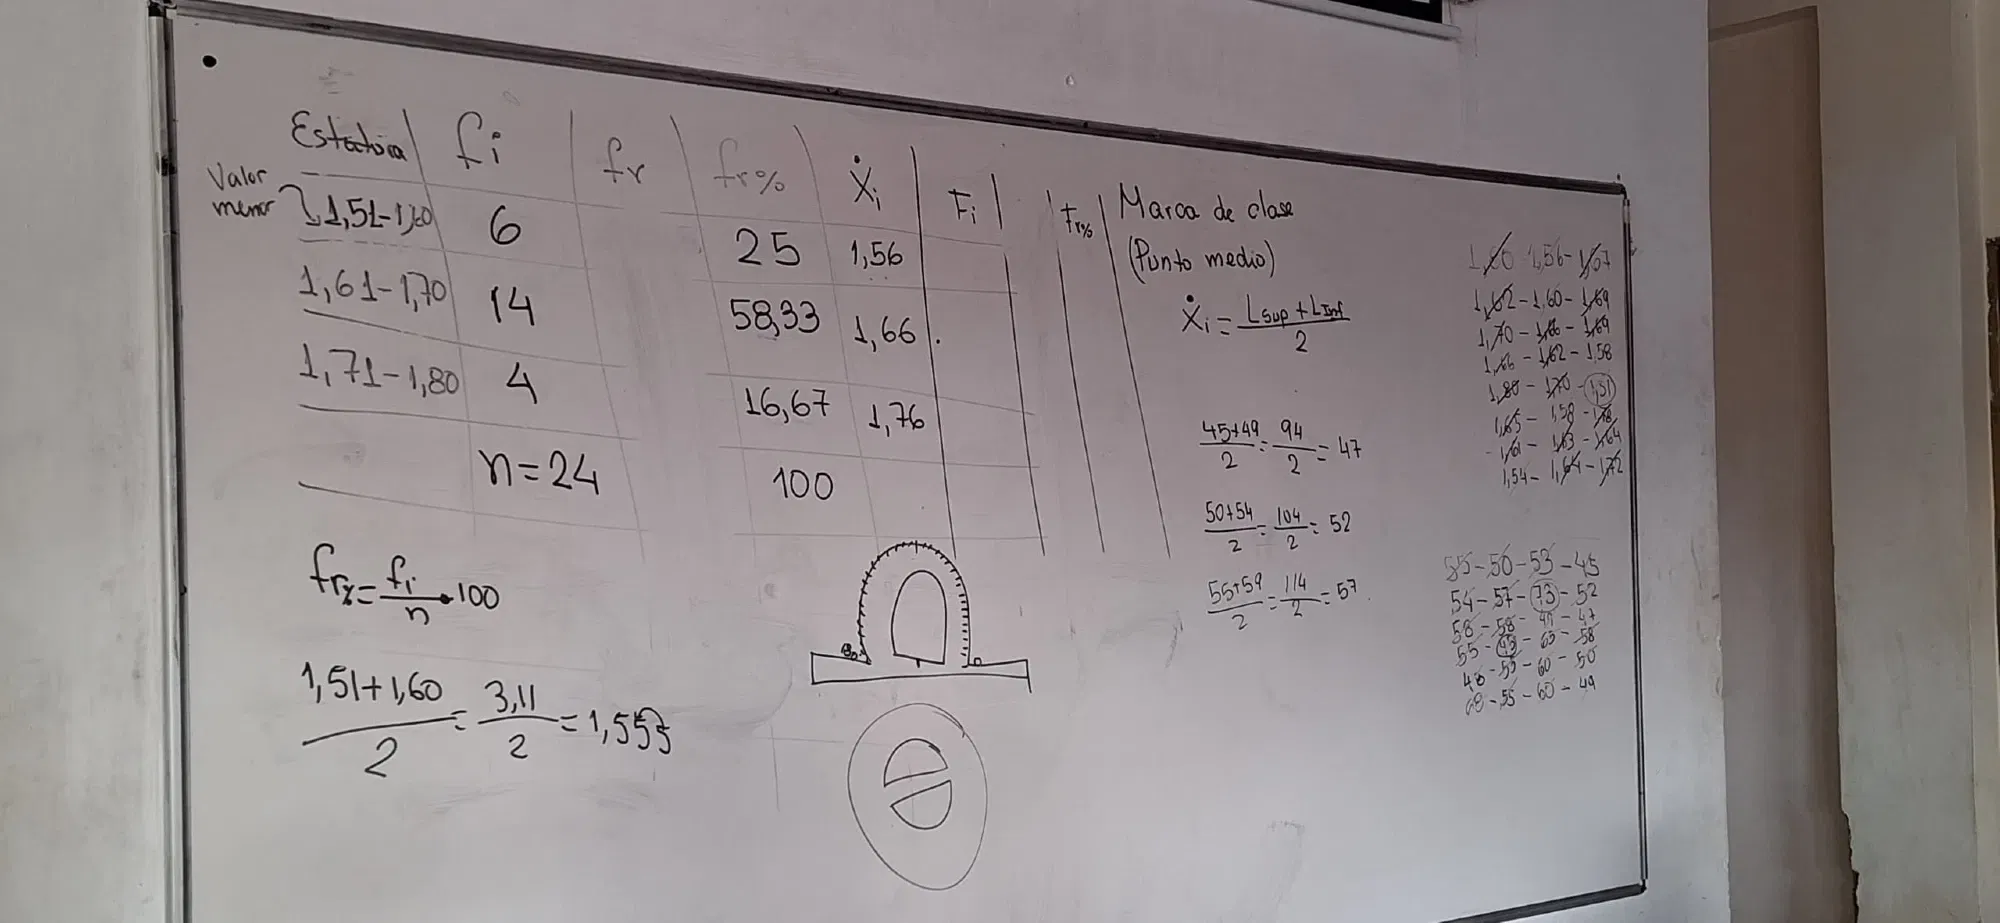 Estatura fi fr fr% Ẋi Fi Fr%
Valor menor
1,51-1,60 6 25 1,56
1,61-1,70 14 58,33 1,66
1,71-1,80 4 16,67 1,76
n=24 100
fr%= fi/n • 100
1,51+1,60/2 = 3,11/2 = 1,555
Marca de clase
(Punto medio)
Ẋi = Lsup + LInf/2
45+49/2 = 94/2 = 47
50+54/2 = 104/2 = 52
55+59/2 = 114/2 = 57
1,60 1,56-1,67
1,62-1,60-1,69
1,70-1,66-1,69
1,66-1,62-1,58
1,80-1,70-1,51
1,65-1,58-
1,61-1,63-1,64
1,54-1,64-1,72
55-50-53-45
54-57-73-52
58-58-49-47
55- -65-58
48-55-60-50
68-55-60-49